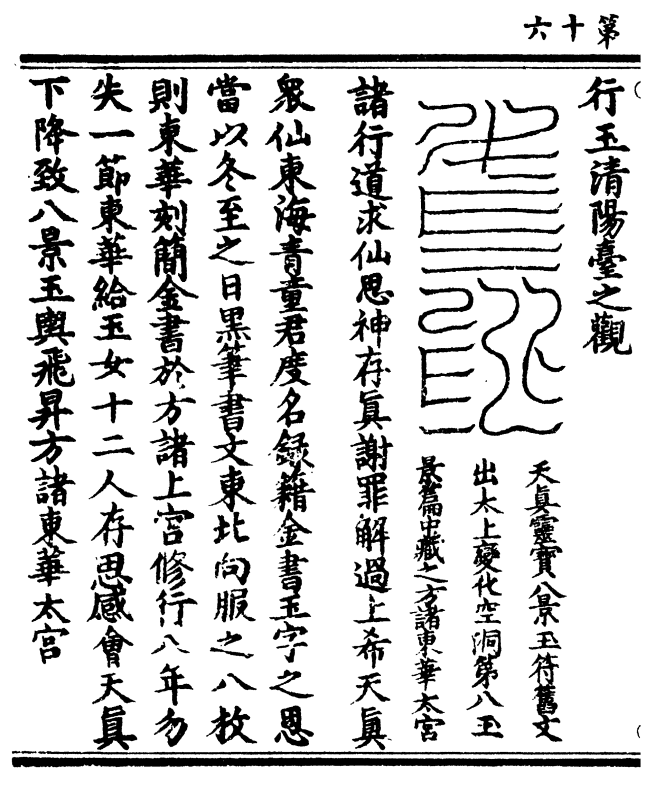 第十六
行玉清陽臺之觀
天真靈寶八景玉符舊文
出太上變化空洞第八玉
景篇中藏之方諸東華太宮
諸行道求仙思神存真謝罪解過上希天真
衆仙東海青童君度名録籍金書玉字之恩
當以冬至之日黑筆書文東北向服之八枚
則東華刻簡金書於方諸上宮修行八年勿
失一節東華給玉女十二人存思感會天真
下降致八景玉輿飛昇方諸東華太宮